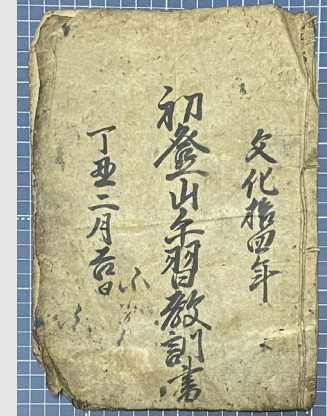 文化拾四年
初登山手習教訓書
丁丑二月吉日